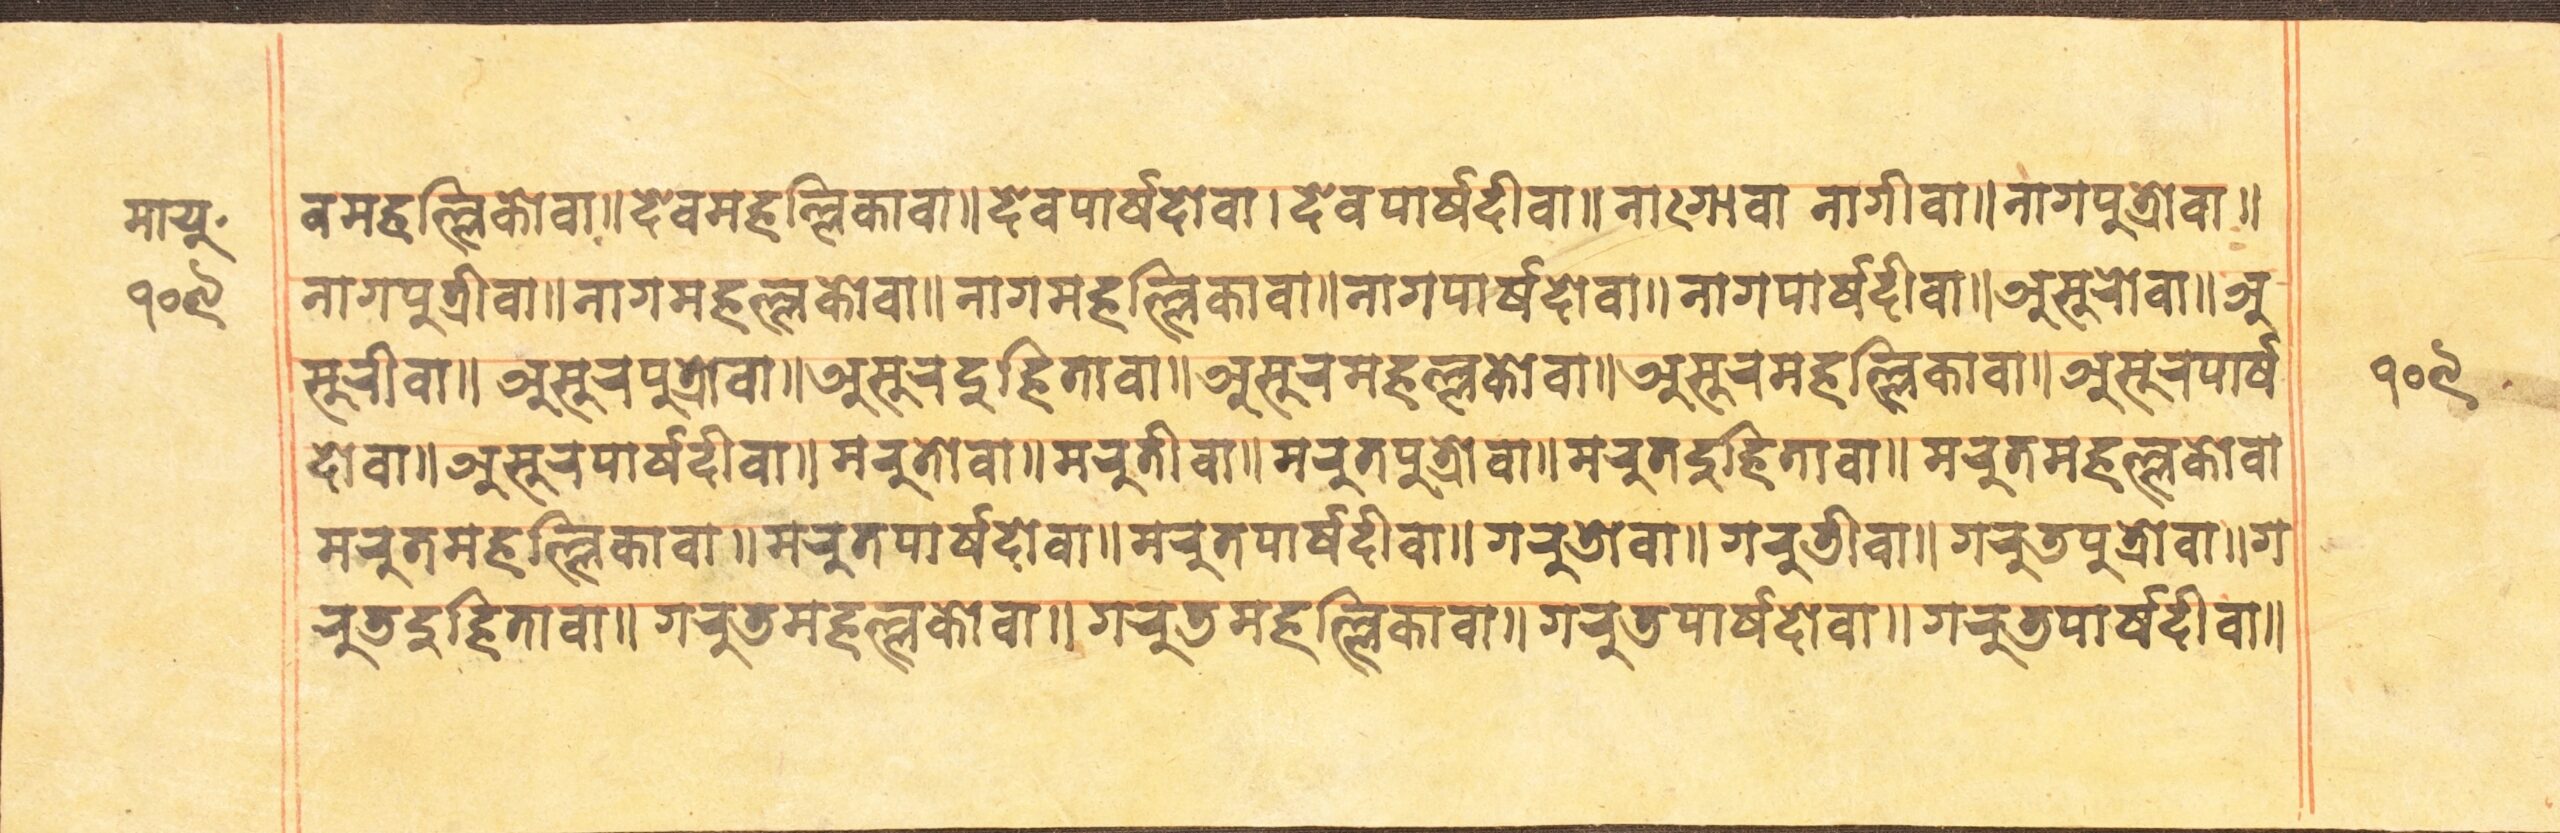 मायु.
१०९
वमहल्लिकोवा॥देवमहल्लिकावा॥देवपार्षदोवा।देवपार्षदीवा॥नागोवा नागीवा॥नागपुत्रोवा॥
नागपुत्रीवा॥नागमहल्लकोवा॥नागमहल्लिकावा॥नागपार्षदोवा॥नागपार्षदीवा॥असुरोवा॥अ
सुरीवा॥असुरपुत्रोवा॥असुरदुहितावा॥असुरमहल्लकोवा॥असुरमहल्लिकावा॥असुरपार्ष
दोवा॥असुरपार्षदीवा॥मरुतोवा॥मरुतीवा॥मरुतपुत्रोवा॥मरुतदुहितावा॥मरुतमहल्लकोवा
मरुतमहल्लिकावा॥मरुतपार्षदोवा॥मरुतपार्षदीवा॥गरुडोवा॥गरुडीवा॥गरुडपुत्रोवा॥ग
रुडदुहितावा॥गरुडमहल्लकोवा॥गरुडमहल्लिकावा॥गरुडपार्षदोवा॥गरुडपार्षदीवा॥
१०९